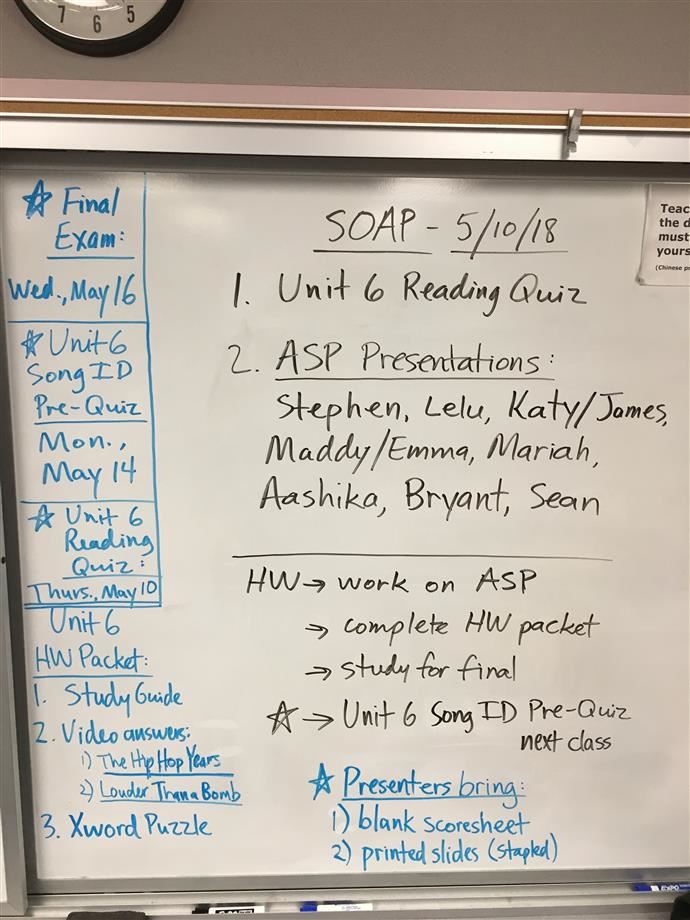 7 6 5
☆ Final
Exam:
Wed., May 16
☆ Unit 6
Song ID
Pre-Quiz
Mon.,
May 14
☆ Unit 6
Reading
Quiz:
Thurs., May 10
Unit 6
HW Packet:
1. Study Guide
2. Video answers:
1) The Hip Hop Years
2) Louder Than a Bomb
3. Xword Puzzle
SOAP - 5/10/18
1. Unit 6 Reading Quiz
2. ASP Presentations:
Stephen, Lelu, Katy/James,
Maddy/Emma, Mariah,
Aashika, Bryant, Sean
HW → work on ASP
→ complete HW packet
→ study for final
☆ → Unit 6 Song ID Pre-Quiz
next class
☆ Presenters bring:
1) blank scoresheet
2) printed slides (stapled)
Teac
the d
must
yours
(Chinese p
EXPO